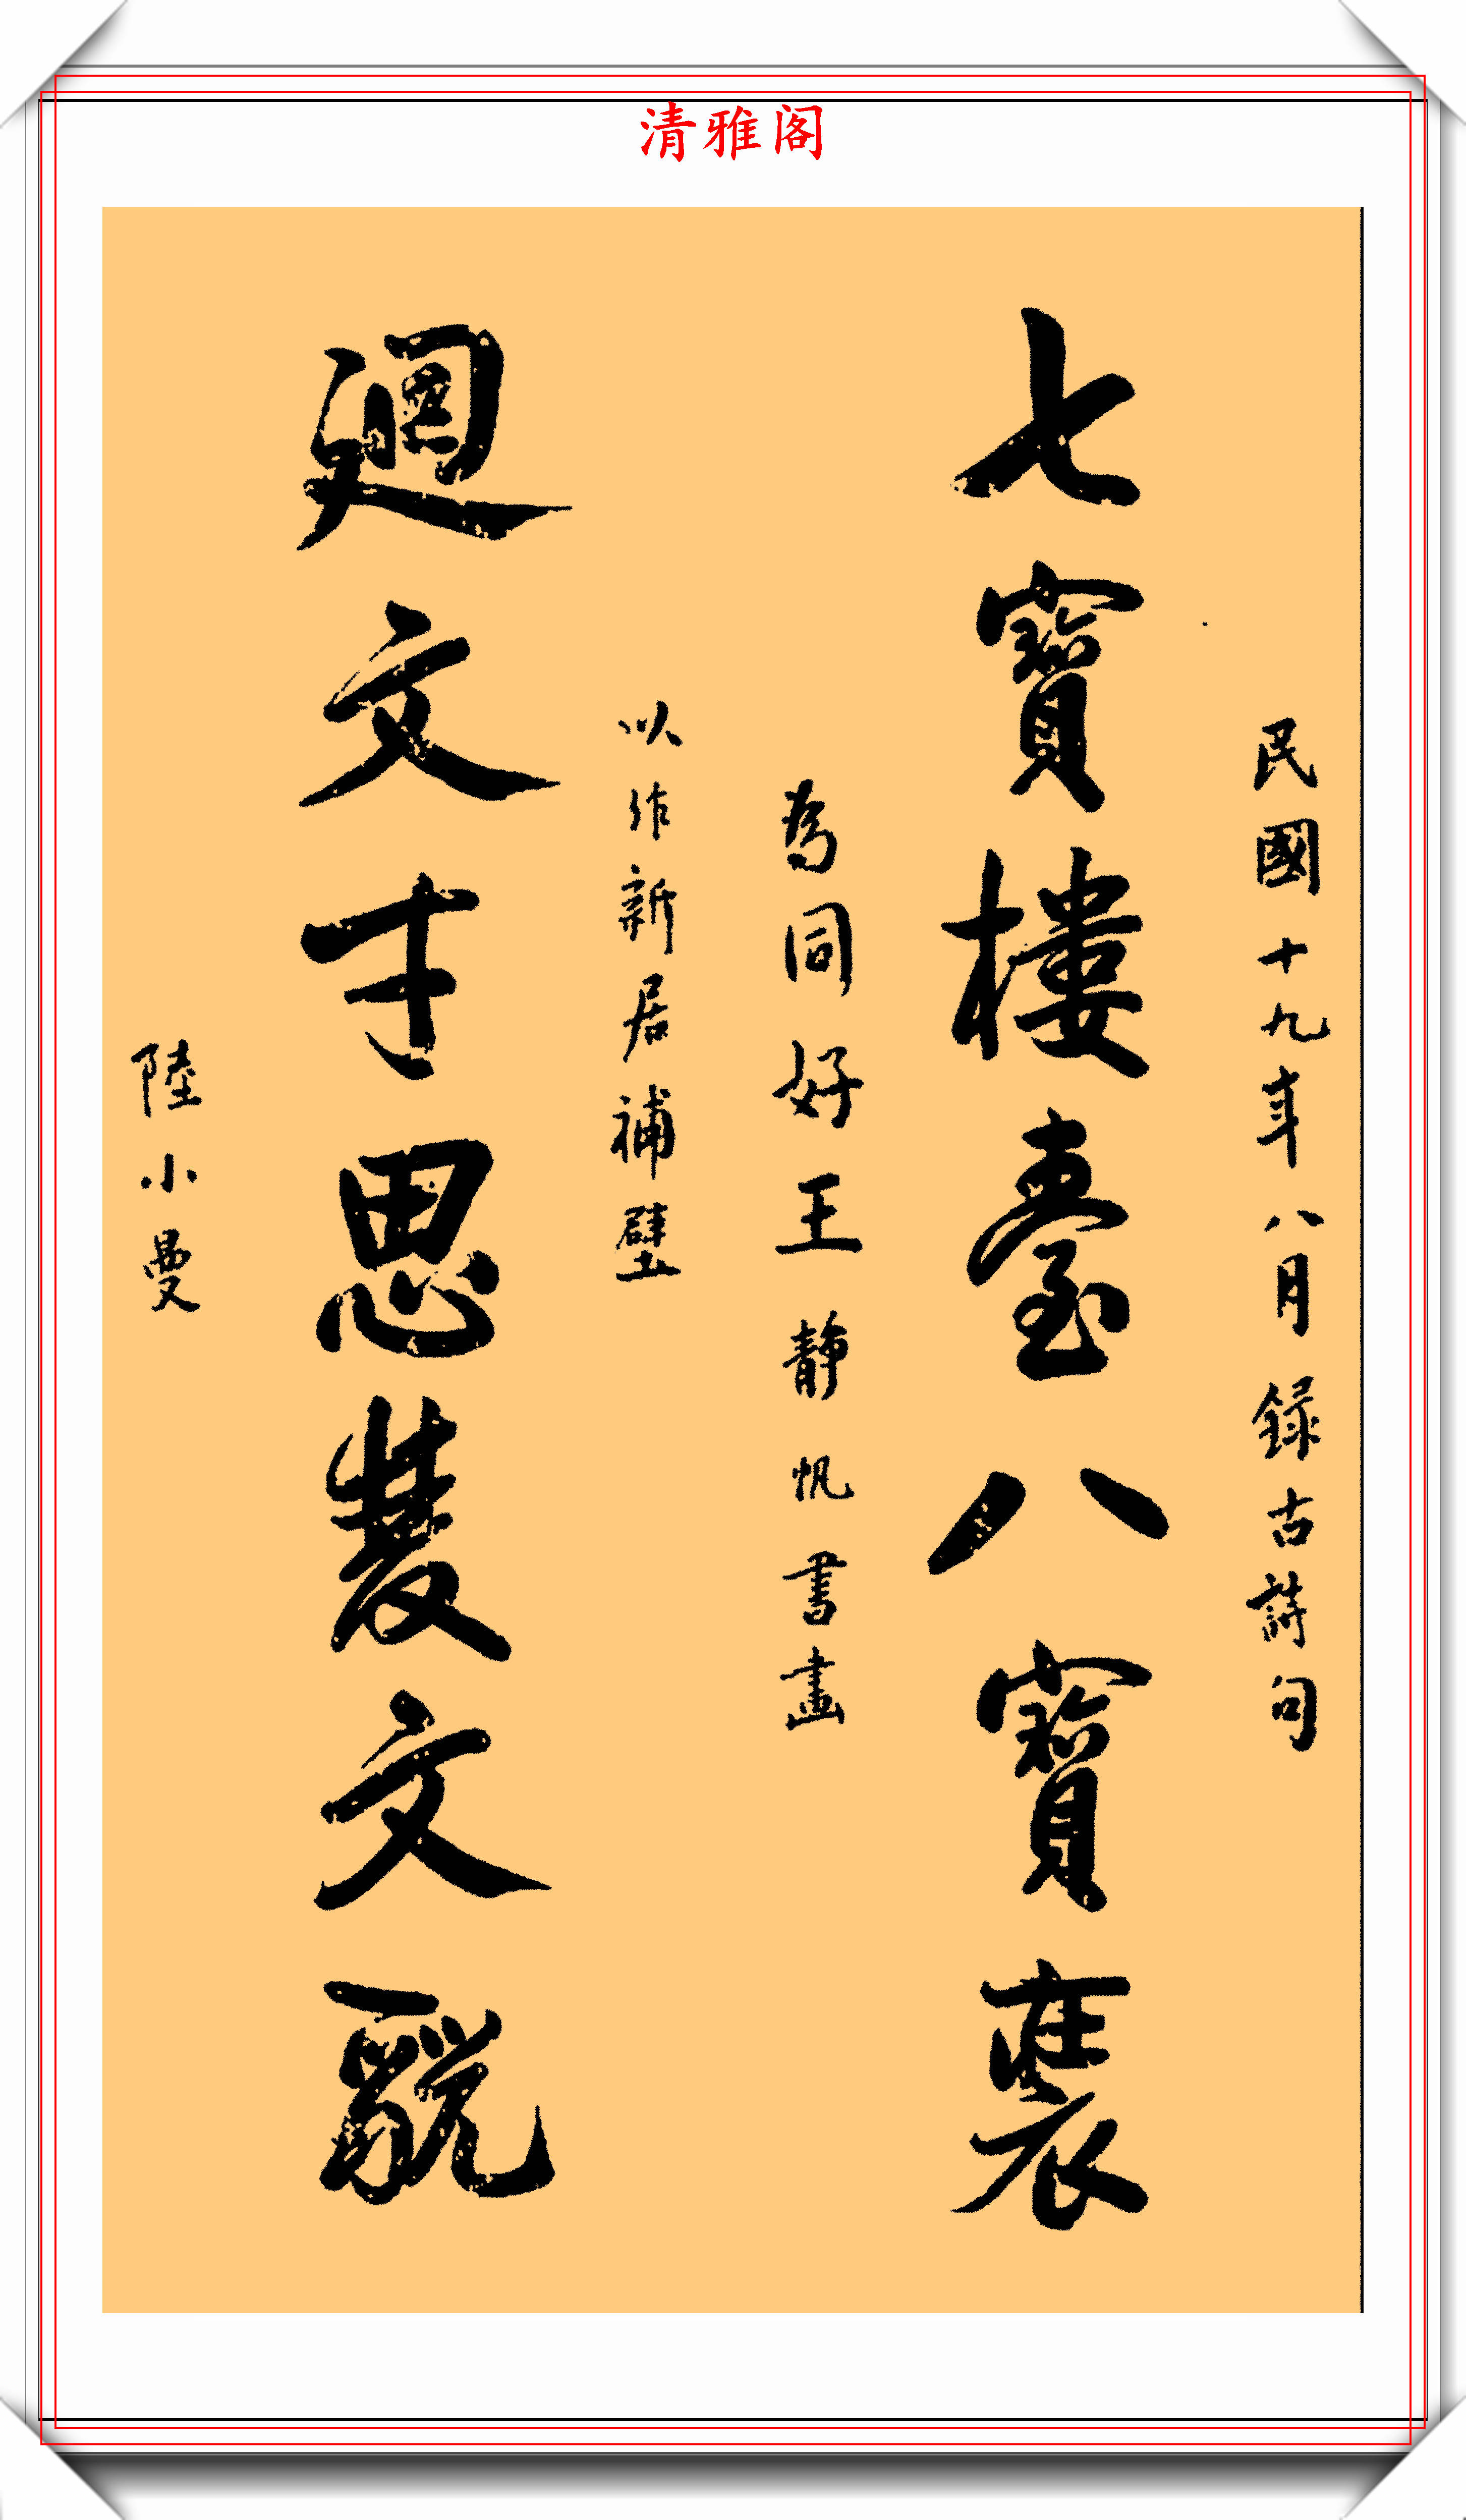 清雅阁
民國十九年八月錄古詩句
七寶樓臺八寶裝
為同好王靜帆書畫
以作新居補壁
廻文才思雙文
陸小曼